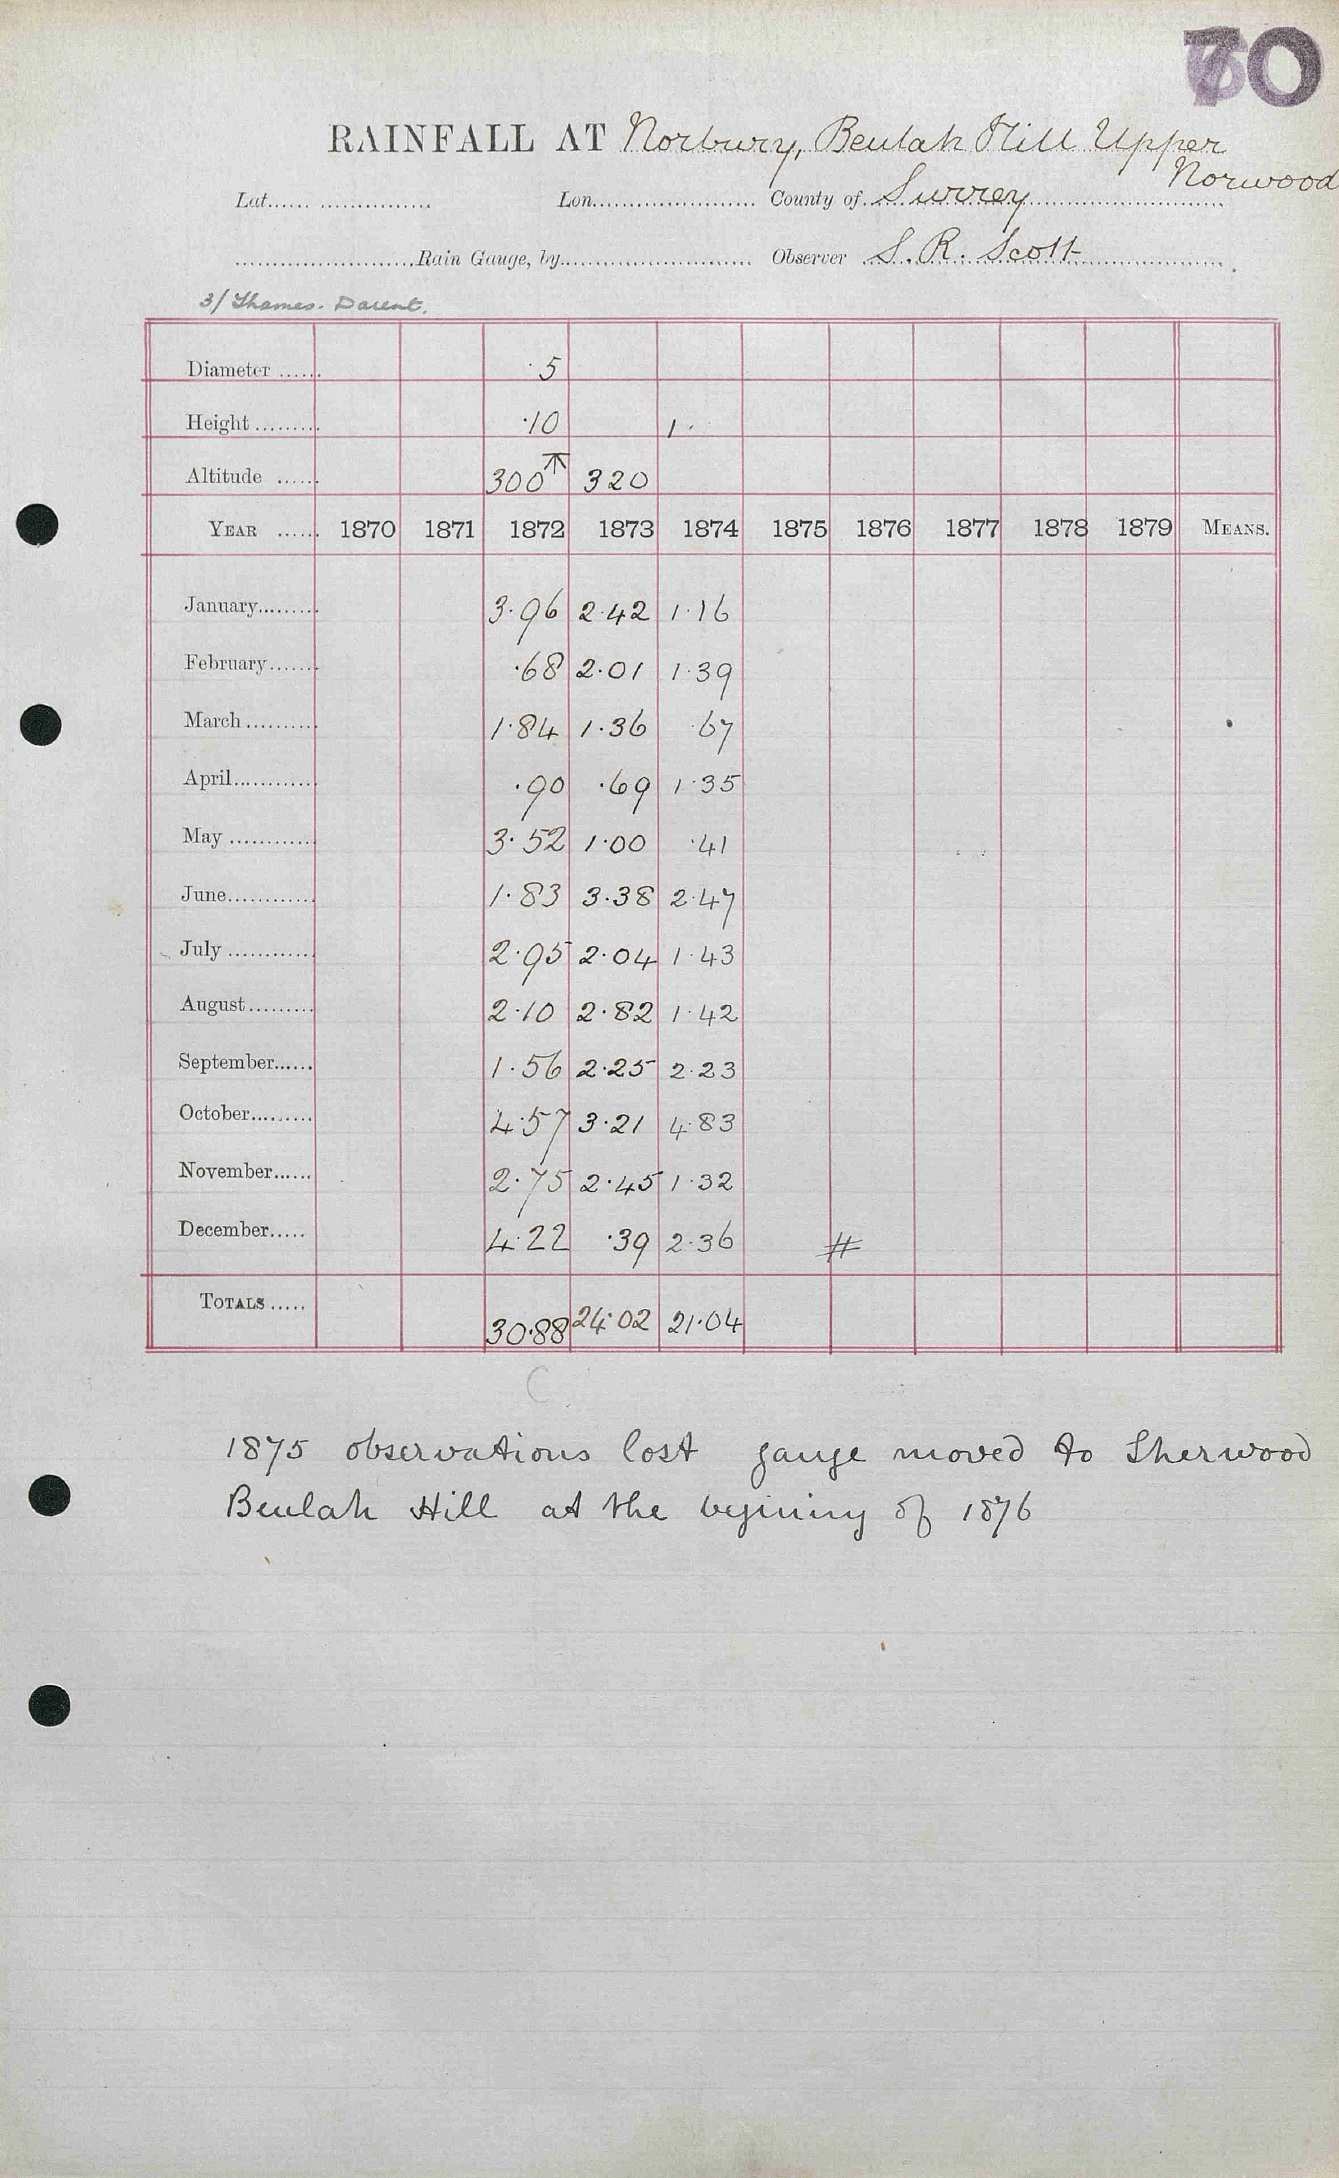 70
RAINFALL AT Norbury, Beulah Hill Upper
Norwood
Lat. Lon. County of Surrey
Rain Gauge, by Observer S. R. Scott
3/ Thames. Darent.
Diameter ...... ·5
Height ......... ·10 1·
Altitude ...... 300 320
YEAR ...... 1870 1871 1872 1873 1874 1875 1876 1877 1878 1879 MEANS.
January......... 3·96 2·42 1·16
February....... ·68 2·01 1·39
March .......... 1·84 1·36 ·67
April............ ·90 ·69 1·35
May ............ 3·52 1·00 ·41
June............ 1·83 3·38 2·47
July ............ 2·95 2·04 1·43
August......... 2·10 2·82 1·42
September...... 1·56 2·25 2·23
October......... 4·57 3·21 4·83
November...... 2·75 2·45 1·32
December..... 4·22 ·39 2·36 #
TOTALS ..... 30·88 24·02 21·04
1875 observations lost gauge moved to Sherwood
Beulah Hill at the begining of 1876